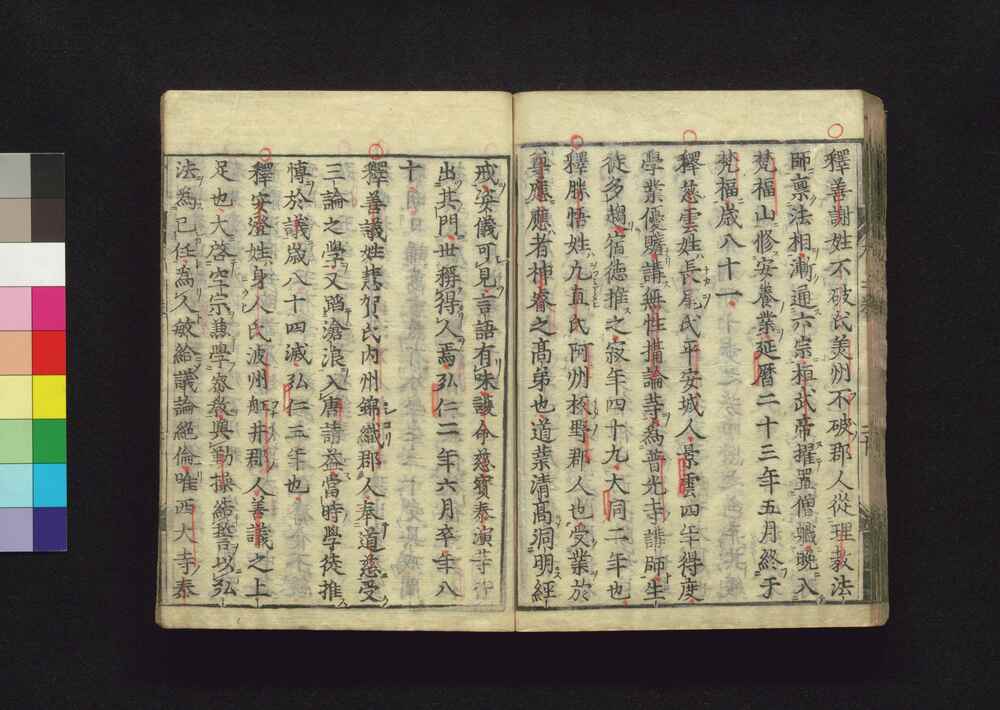 釋善謝姓不破氏美州不破郡人從理教法
師稟法相漸通六宗桓武帝擢置僧職晩入
梵福山修安養業延曆二十三年五月終于
梵福歳八十一
釋慈雲姓長尾氏平安城人景雲四年得度
學業優贍講無性攝論等爲普光寺講師生
徒多趨宿德推之寂年四十九大同二年也
釋勝悟姓九直氏阿州板野郡人也受業於
尊應應者神睿之髙弟也道業清髙洞明經
戒安儀可見言語有味護命慈寶泰演等行
出其門世稱得人焉弘仁二年六月卒年八
十
釋善議姓慧賀氏内州錦織郡人奉道慈受
三論之學又蹈滄浪入唐請益當時學徒推
博於議歳八十四滅弘仁三年也
釋安澄姓身人氏波州舩井郡人善議之上
足也大啓空宗兼學密教興動操結誓以弘
法為己任為人敏給議論絶倫唯西大寺泰